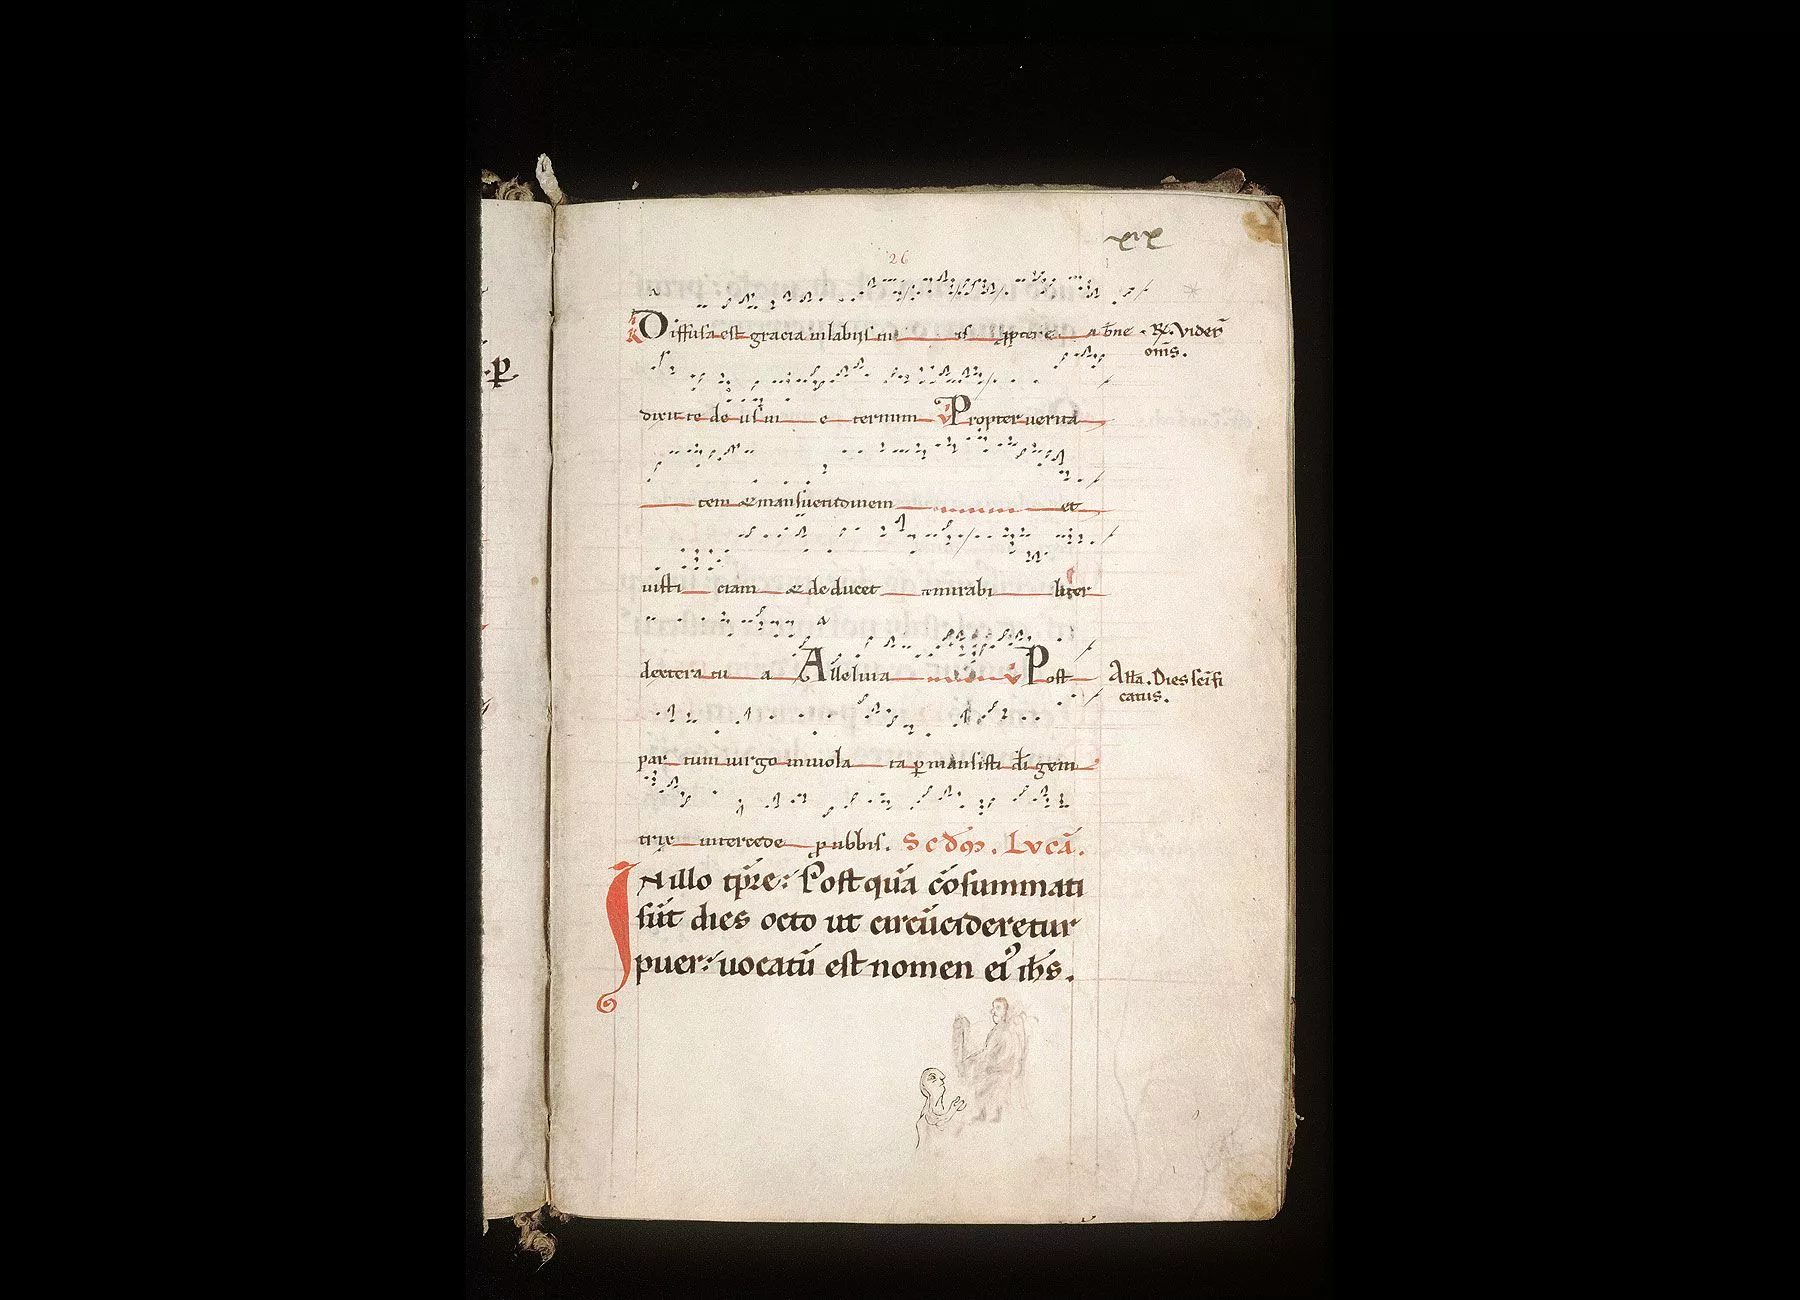 xix
26
Diffusa est gracia in labiis tu is propter e a bn̄e
R̃. Viderr̃
om̄s.
dixit te deus in e ternum V Propter verita
tem & mansuetudinem et
iusti ciam & deducet te mirabi liter
dextera tu a Alleluia V Post
All̃a. Dies sc̄ifi
catus.
par tum uirgo inuiola ta ꝑmansisti dī geni
trix intercede ꝓ nobis. Scđm. Lvcā.
IN illo tp̄re: Postquā cōsummati
sūt dies octo ut circūcideretur
puer: uocatū est nomen eiꝰ ih̄s.